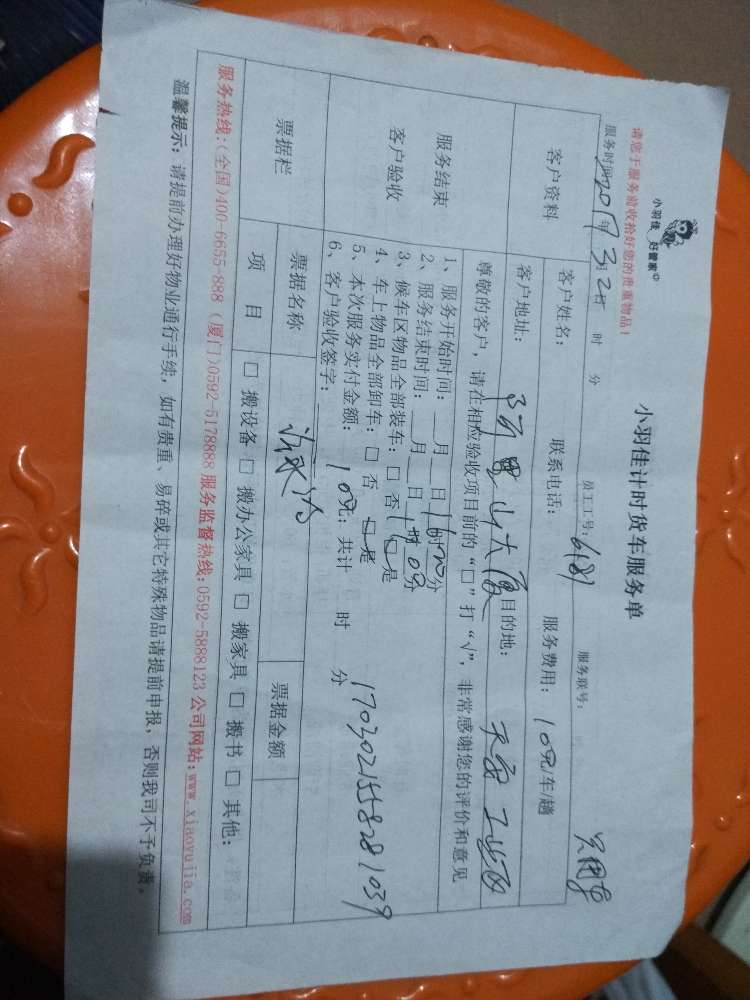 小羽佳 好管家
小羽佳计时货车服务单
请您于服务前收拾好您的贵重物品!
服务时间: 2017年3月2日 时 分 员工工号: 6181 服务联号:
客户资料
客户姓名: 联系电话: 服务费用: 100元/车/趟
客户地址: 目的地:
服务结束
客户验收
尊敬的客户,请在相应验收项目前的“□”打“√”,非常感谢您的评价和意见
1、服务开始时间:__月__日16时20分
2、服务结束时间:__月__日17时0分
3、候车区物品全部装车:□否 □是
4、车上物品全部卸车:□否 □是
5、本次服务实付金额: 100元;共计 时 分
6、客户验收签字:
1703021558281039
票据栏
票据名称 票据金额
项目 □搬设备 □搬办公家具 □搬家具 □搬书 □其他:
服务热线:(全国)400-6655-888 (厦门)0592-5178888 服务监督热线:0592-5888123 公司网站:www.xiaoyujia.com
温馨提示:请提前办理好物业通行手续,如有贵重、易碎或其它特殊物品请提前申报,否则我司不予负责。